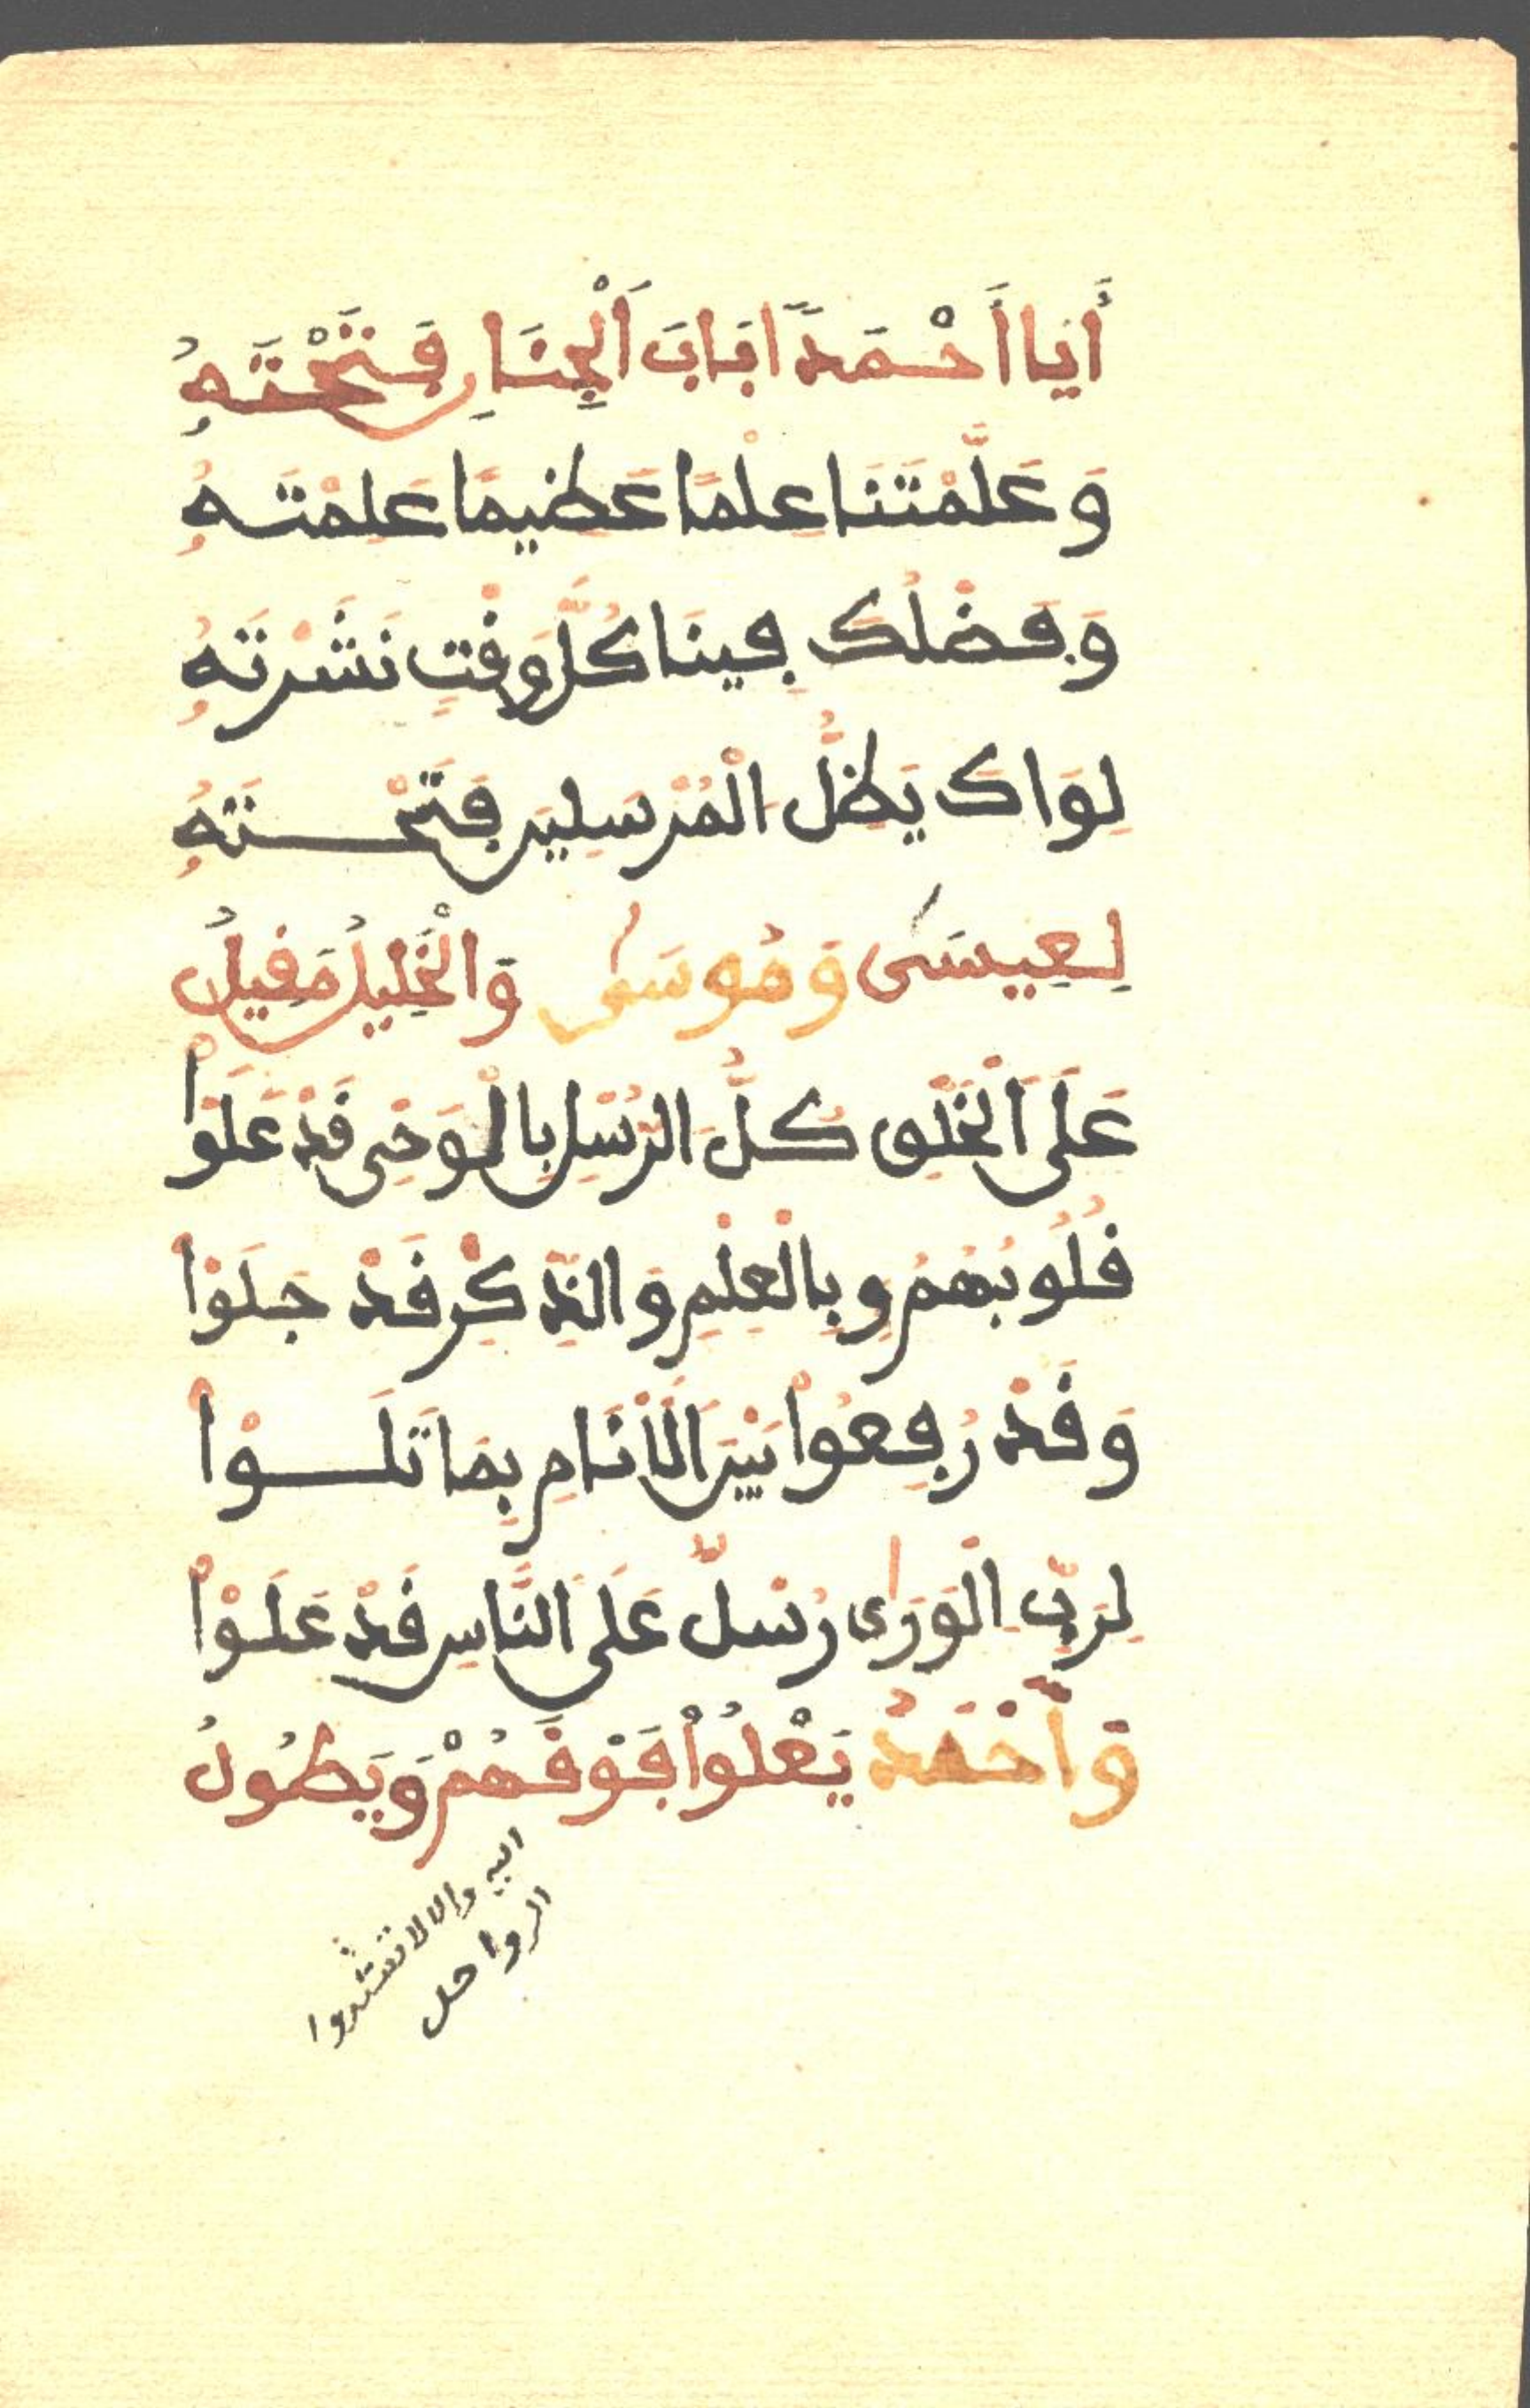 أَيَا أَحْمَدًا بَابَ الْجِنَانِ فَتَحْتَهُ
وَعَلَّمْتَنَا عِلْمًا عَظِيمًا عَلِمْتَهُ
وَفَضْلُكَ فِينَا كُلَّ وَقْتٍ نَشَرْتَهُ
لِوَاكَ يَظَلُّ الْمُرْسَلِينَ فَتَحْتَهُ
لِعِيسَى وَمُوسَى وَالْخَلِيلُ مَقِيلُ
عَلَى الْخَلْقِ كُلُّ الرُّسْلِ بِالْوَحْيِ قَدْ عَلَوْا
قُلُوبُهُمُ وَبِالْعِلْمِ وَالذِّكْرِ قَدْ جَلَوْا
وَقَدْ رُفِعُوا بَيْنَ الْأَنَامِ بِمَا تَلَوْا
لِرَبِّ الْوَرَى رُسْلٌ عَلَى النَّاسِ قَدْ عَلَوْا
وَأَحْمَدُ يَعْلُوا فَوْقَهُمْ وَيَطُولُ
اليه والا لا تشدوا
الرواحل